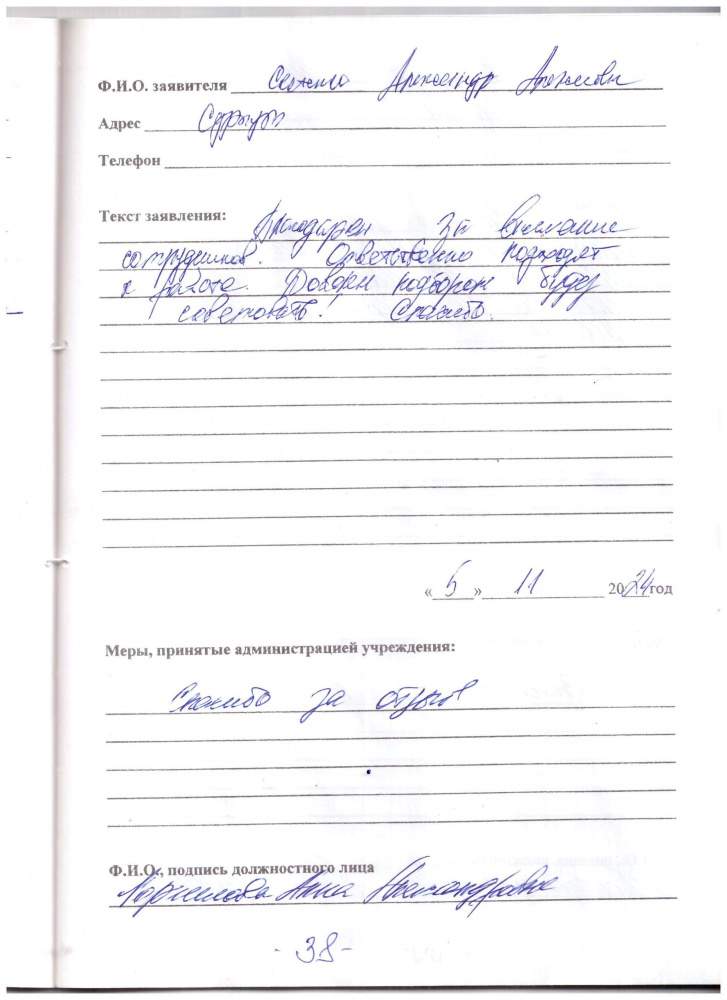 Ф.И.О. заявителя Александр
Адрес Сургут
Телефон
Текст заявления:
Благодарен за внимание
сотрудников. Ответственно подходят
к работе. Доволен подбором буду
советовать! Спасибо.
«5» 11 2024год
Меры, принятые администрацией учреждения:
Спасибо за отзыв
Ф.И.О., подпись должностного лица
Анна Александровна
- 38 -